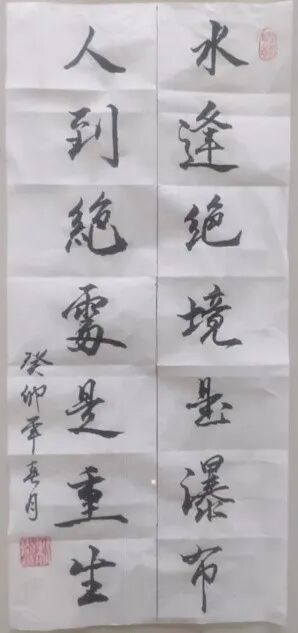 水逢绝境是瀑布
人到絶處是重生
癸卯年春月